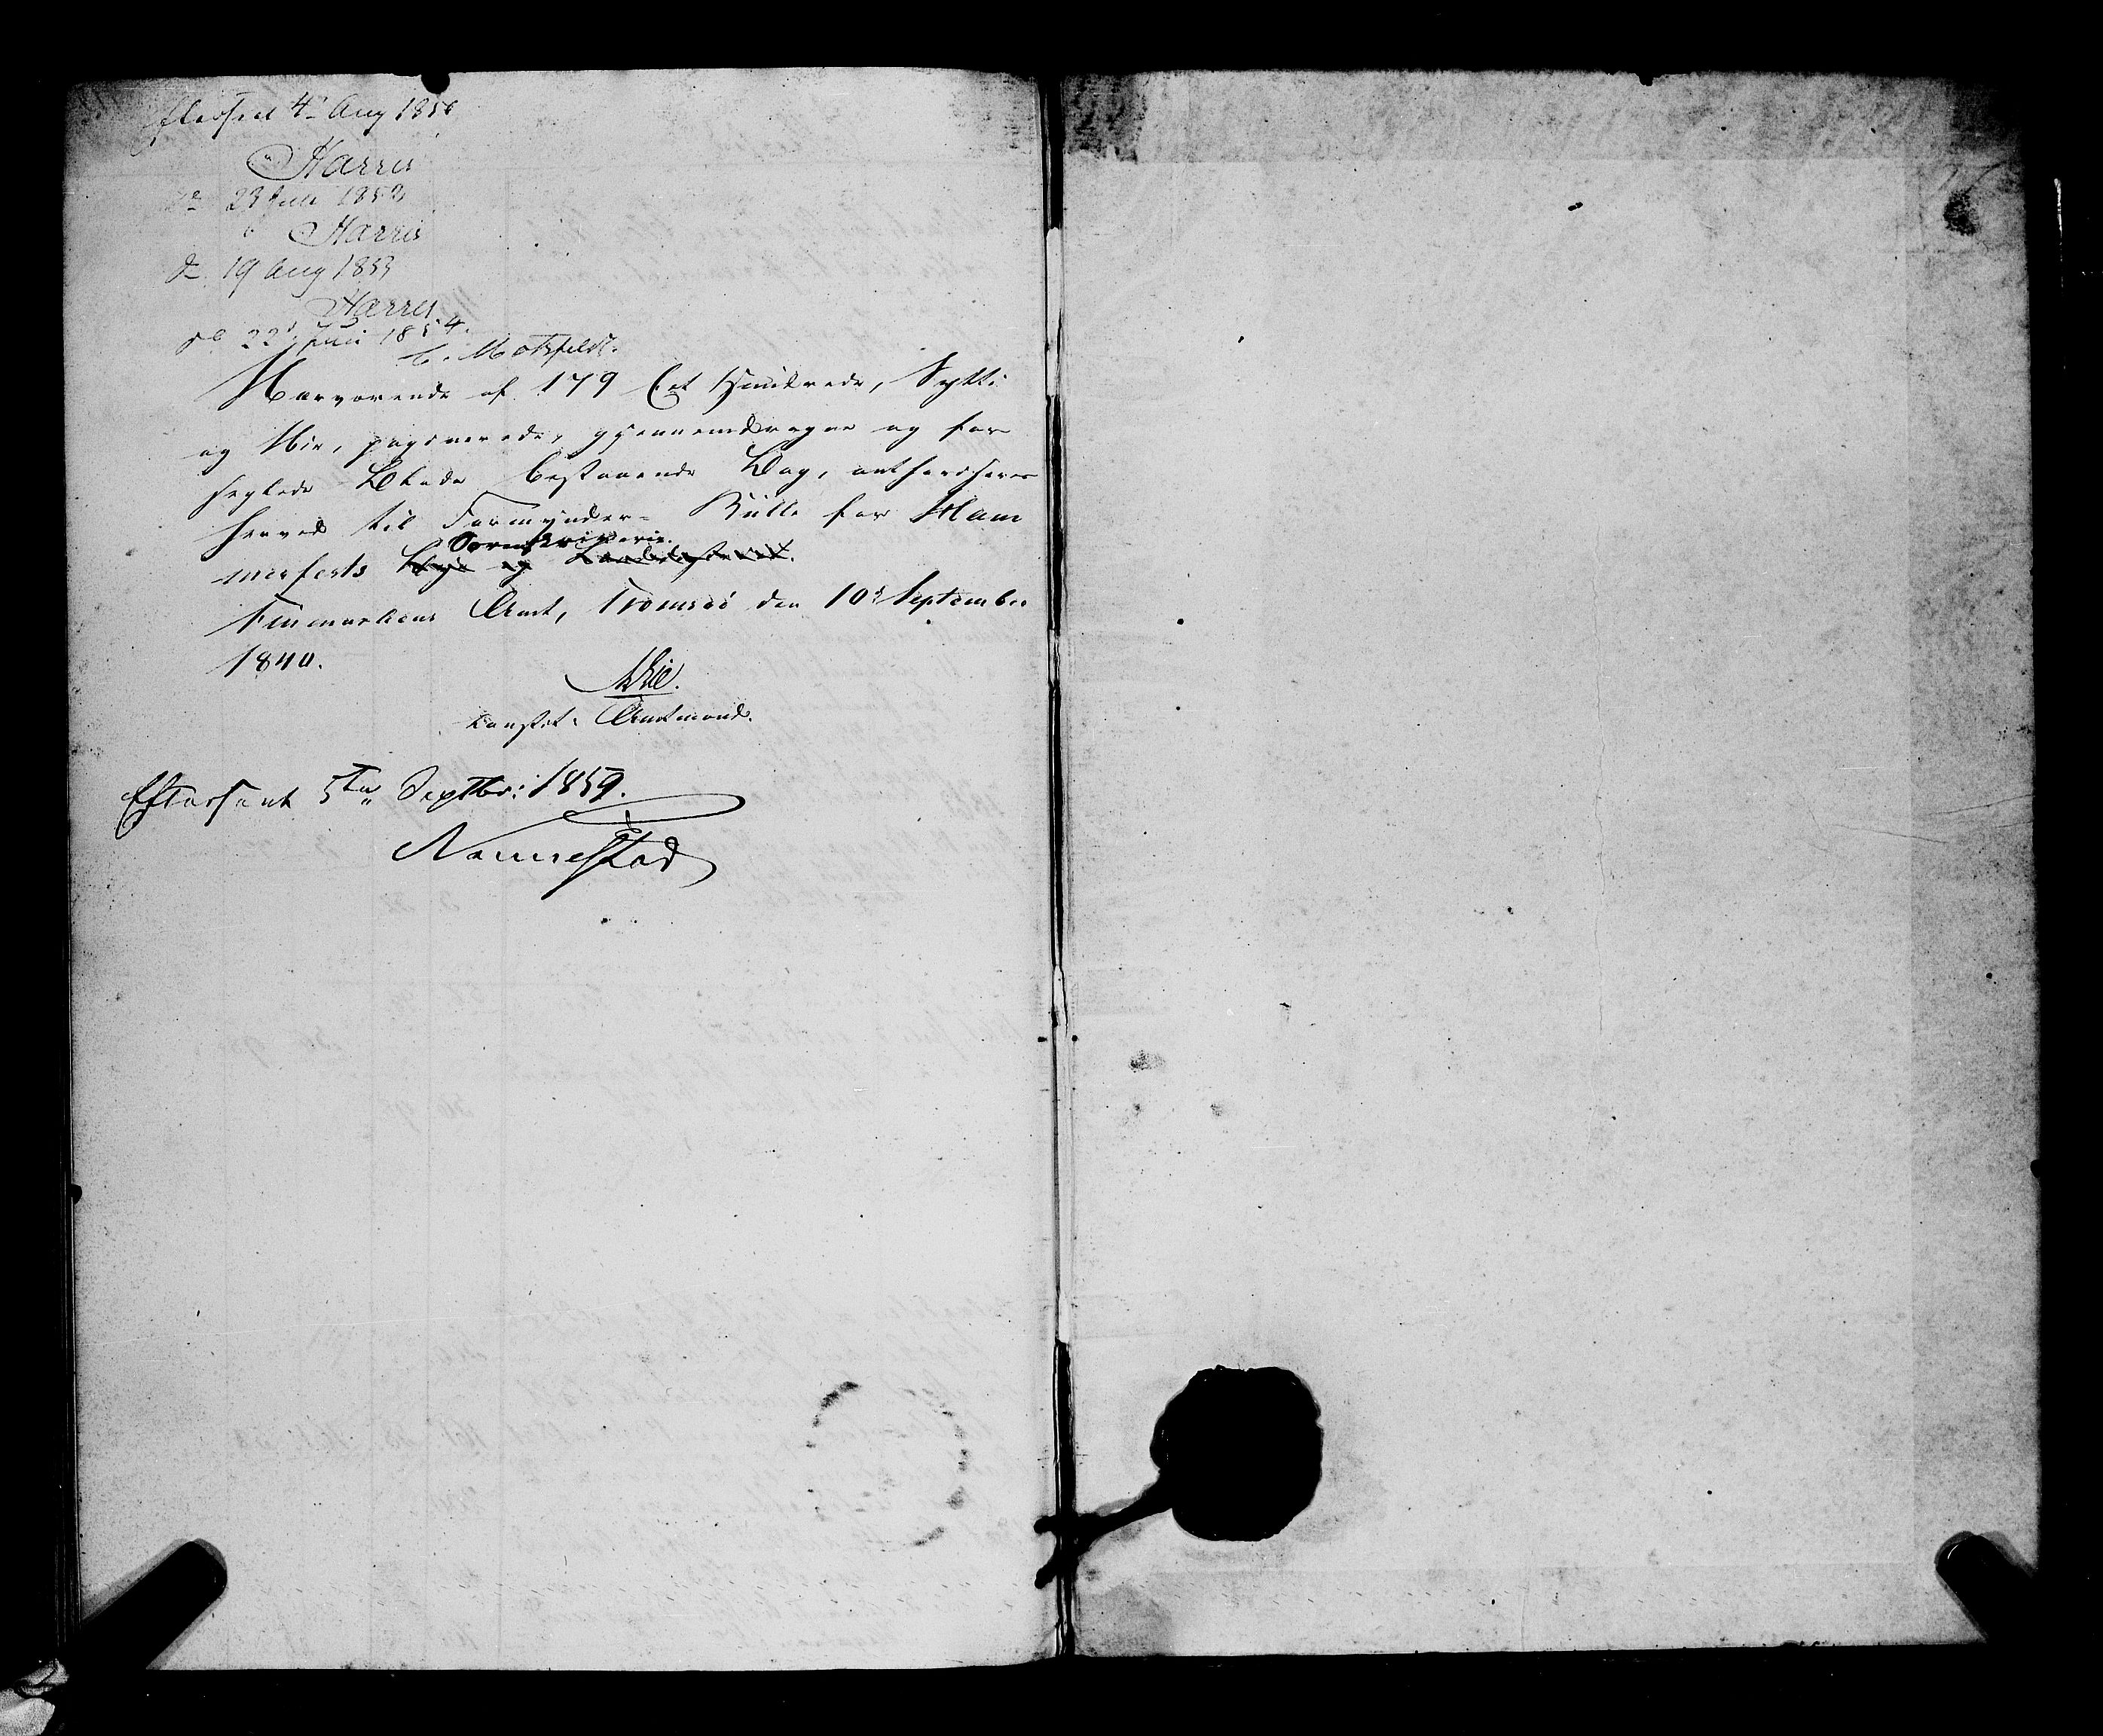 Efterseet 4de Aug 1850
Harris
do 23 Juli 1852
Harris
do 19 Aug 1853
Harris
do 22d Juni 1854.
C. Motzfeldt.
Nærværende af 179 Eet Hundrede, Sytti
og Nie, paginerede, gjennemdragne og for-
seglede Blade bestaaende Bog, authoriseres
herved til Formynder- Rulle for Ham
Sorenskriverie.
merfests Bye og Landdistrict.
Finmarkens Amt, Tromsøe den 10d September
1840.
constit: Amtmand.
Efterseent 5te Septbr: 1859.
Nannestad